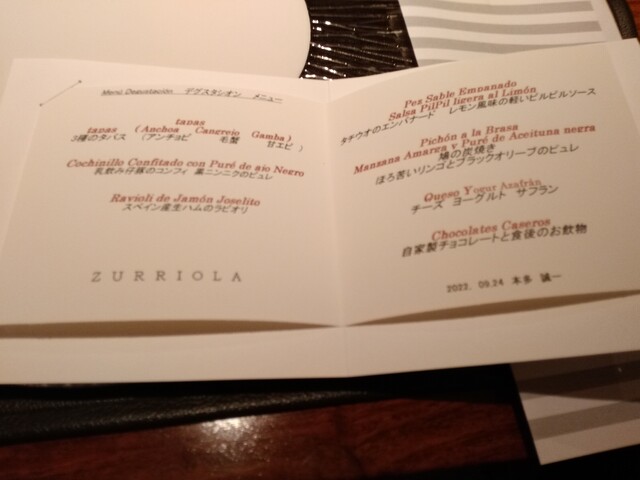 Menú Degustación デグスタシオン メニュー
tapas
tapas (Anchoa Cangrejo Gamba)
3種のタパス (アンチョビ 毛蟹 甘エビ)
Cochinillo Confitado con Puré de ajo Negro
乳飲み仔豚のコンフィ 黒ニンニクのピュレ
Ravioli de Jamón Joselito
スペイン産生ハムのラビオリ
ZURRIOLA
Pez Sable Empanado
Salsa PilPil ligera al Limón
タチウオのエンパナード レモン風味の軽いピルピルソース
Pichón a la Brasa
Manzana Amarga y Puré de Aceituna negra
鳩の炭焼き
ほろ苦いリンゴとブラックオリーブのピュレ
Queso Yogur Azafrán
チーズ ヨーグルト サフラン
Chocolates Caseros
自家製チョコレートと食後のお飲物
2022. 09.24 本多 誠一